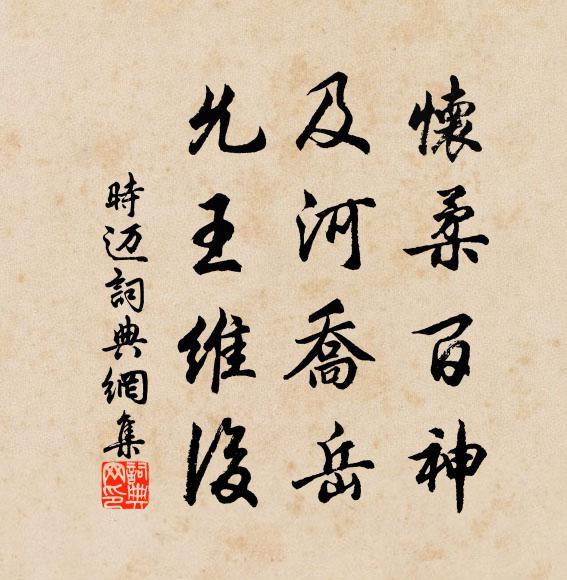 懷柔百神
及河喬岳
允王維後
時迈詞典網集
詞典网印